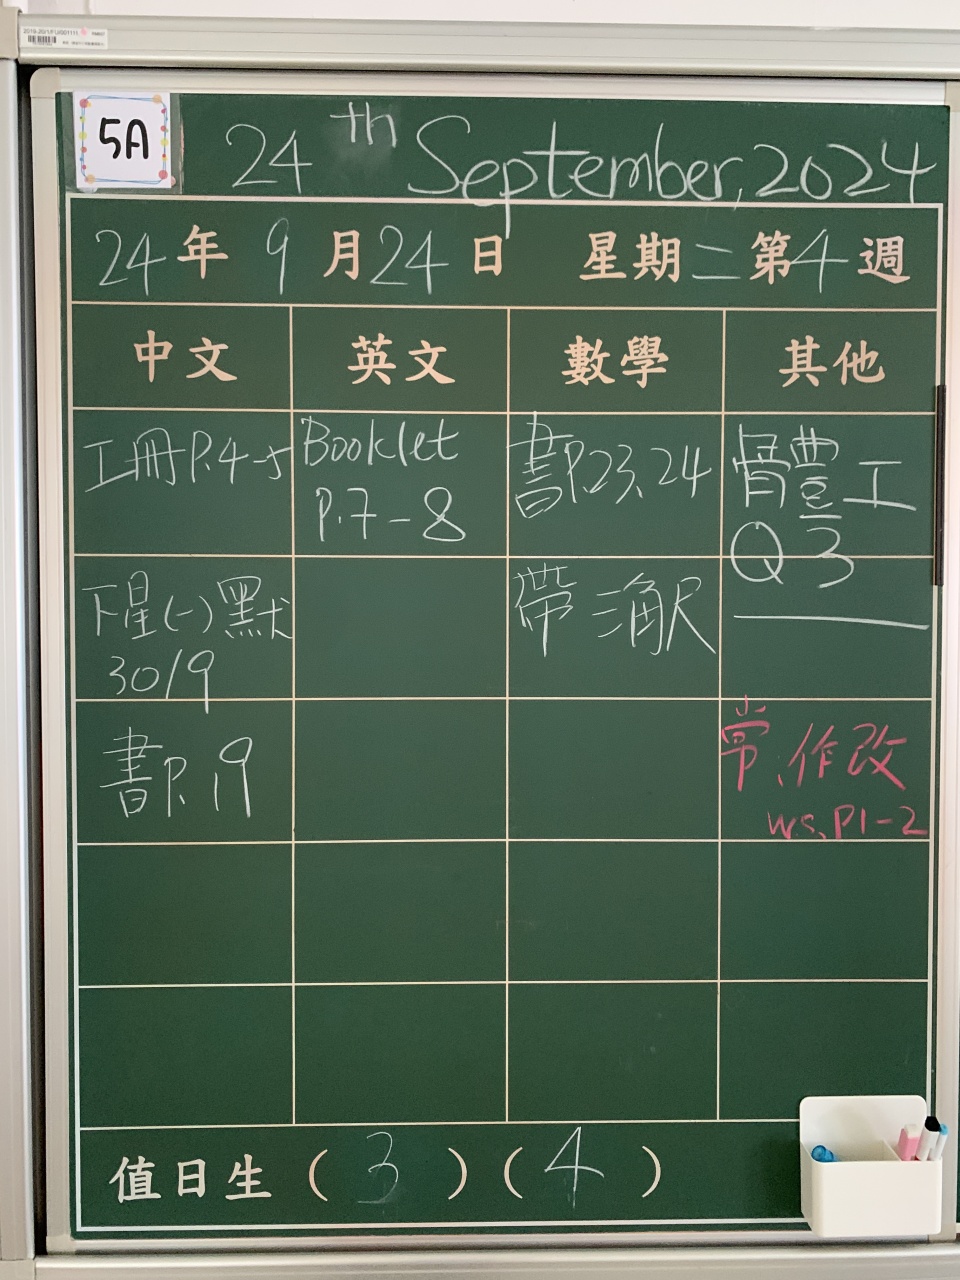 5A
24th September, 2024
24年 9月24日 星期二 第4週
中文 英文 數學 其他
工冊P.4-5 Booklet P.7-8 書P.23, 24 體工 Q3
下星(一)默 30/9 帶三角尺
書P.19 常.作改 ws. P1-2
值日生 (3)(4)